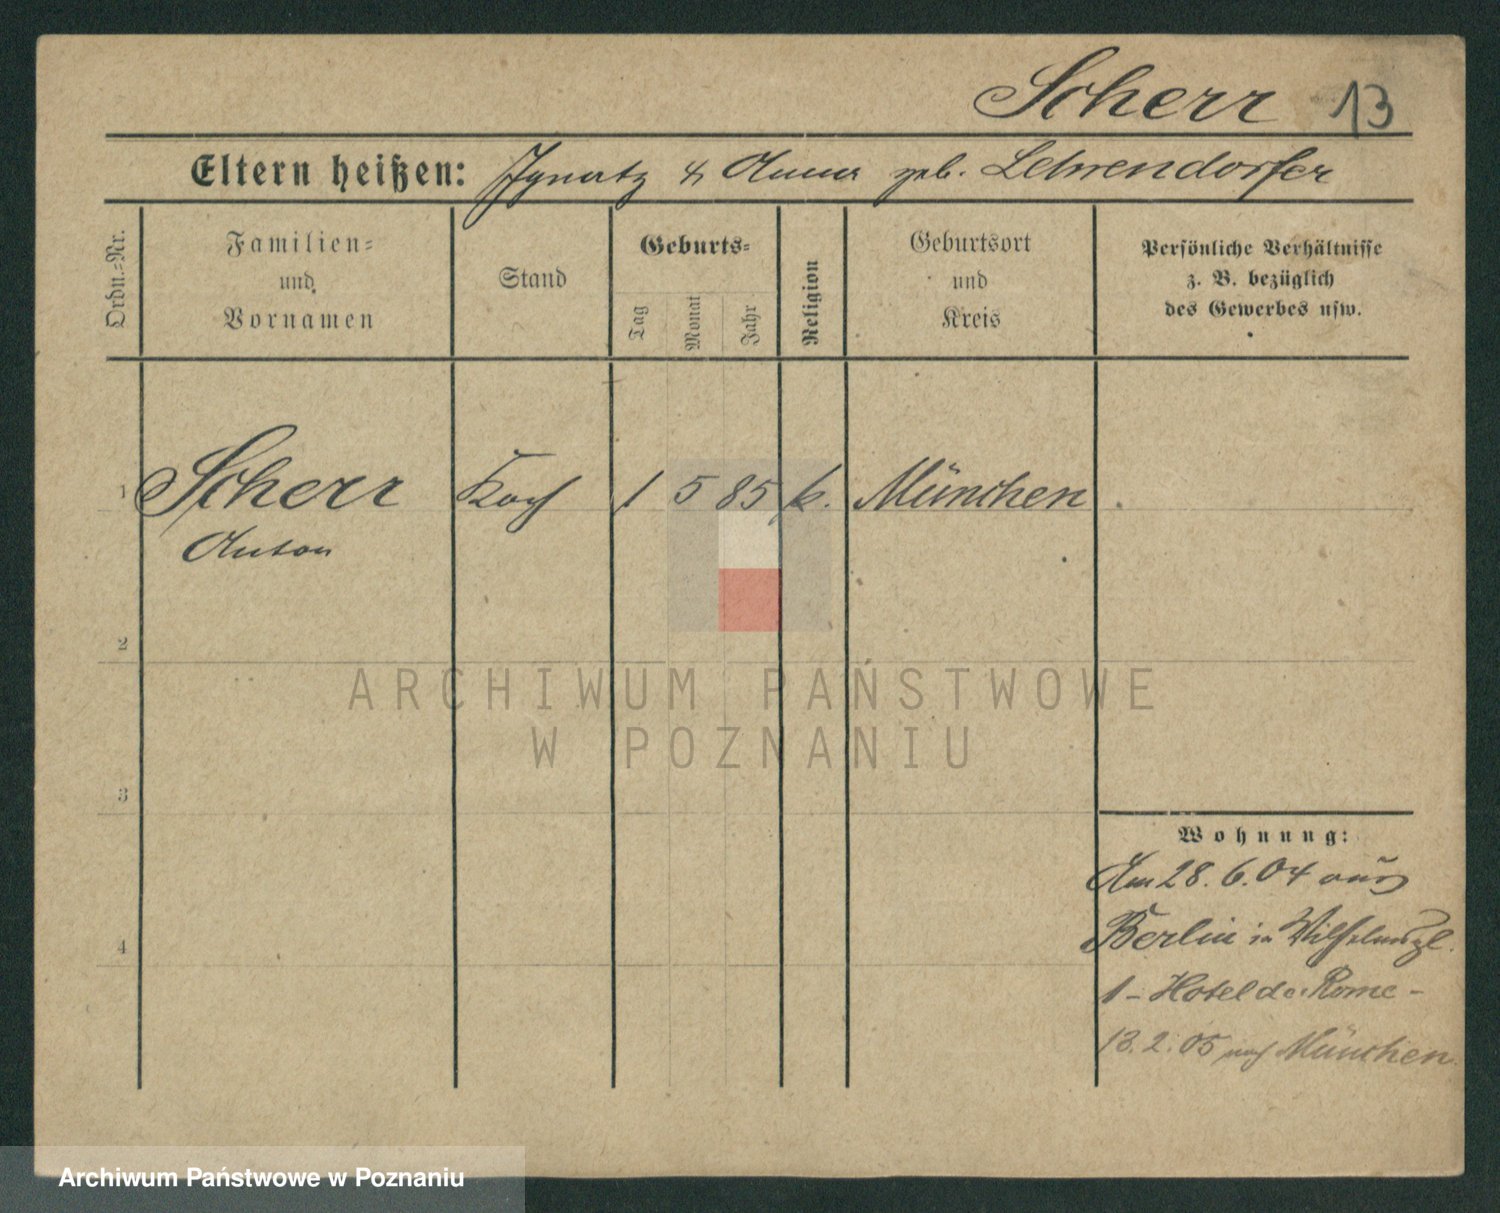 Scherr 13
Eltern heißen: Ignatz & Anna geb. Lehrendorfer
Ordn.=Nr.
Familien=
und
Vornamen
Stand
Geburts=
Tag
Monat
Jahr
Religion
Geburtsort
und
Kreis
Persönliche Verhältnisse
z. B. bezüglich
des Gewerbes usw.
1 Scherr Koch 1 5 85 k. München
Anton
2
3
4
Wohnung:
Am 28.6.04 aus
Berlin in Wilhelmspl.
1 - Hotel de Rome -
13.2.05 nach München
ARCHIWUM PAŃSTWOWE
W POZNANIU
Archiwum Państwowe w Poznaniu